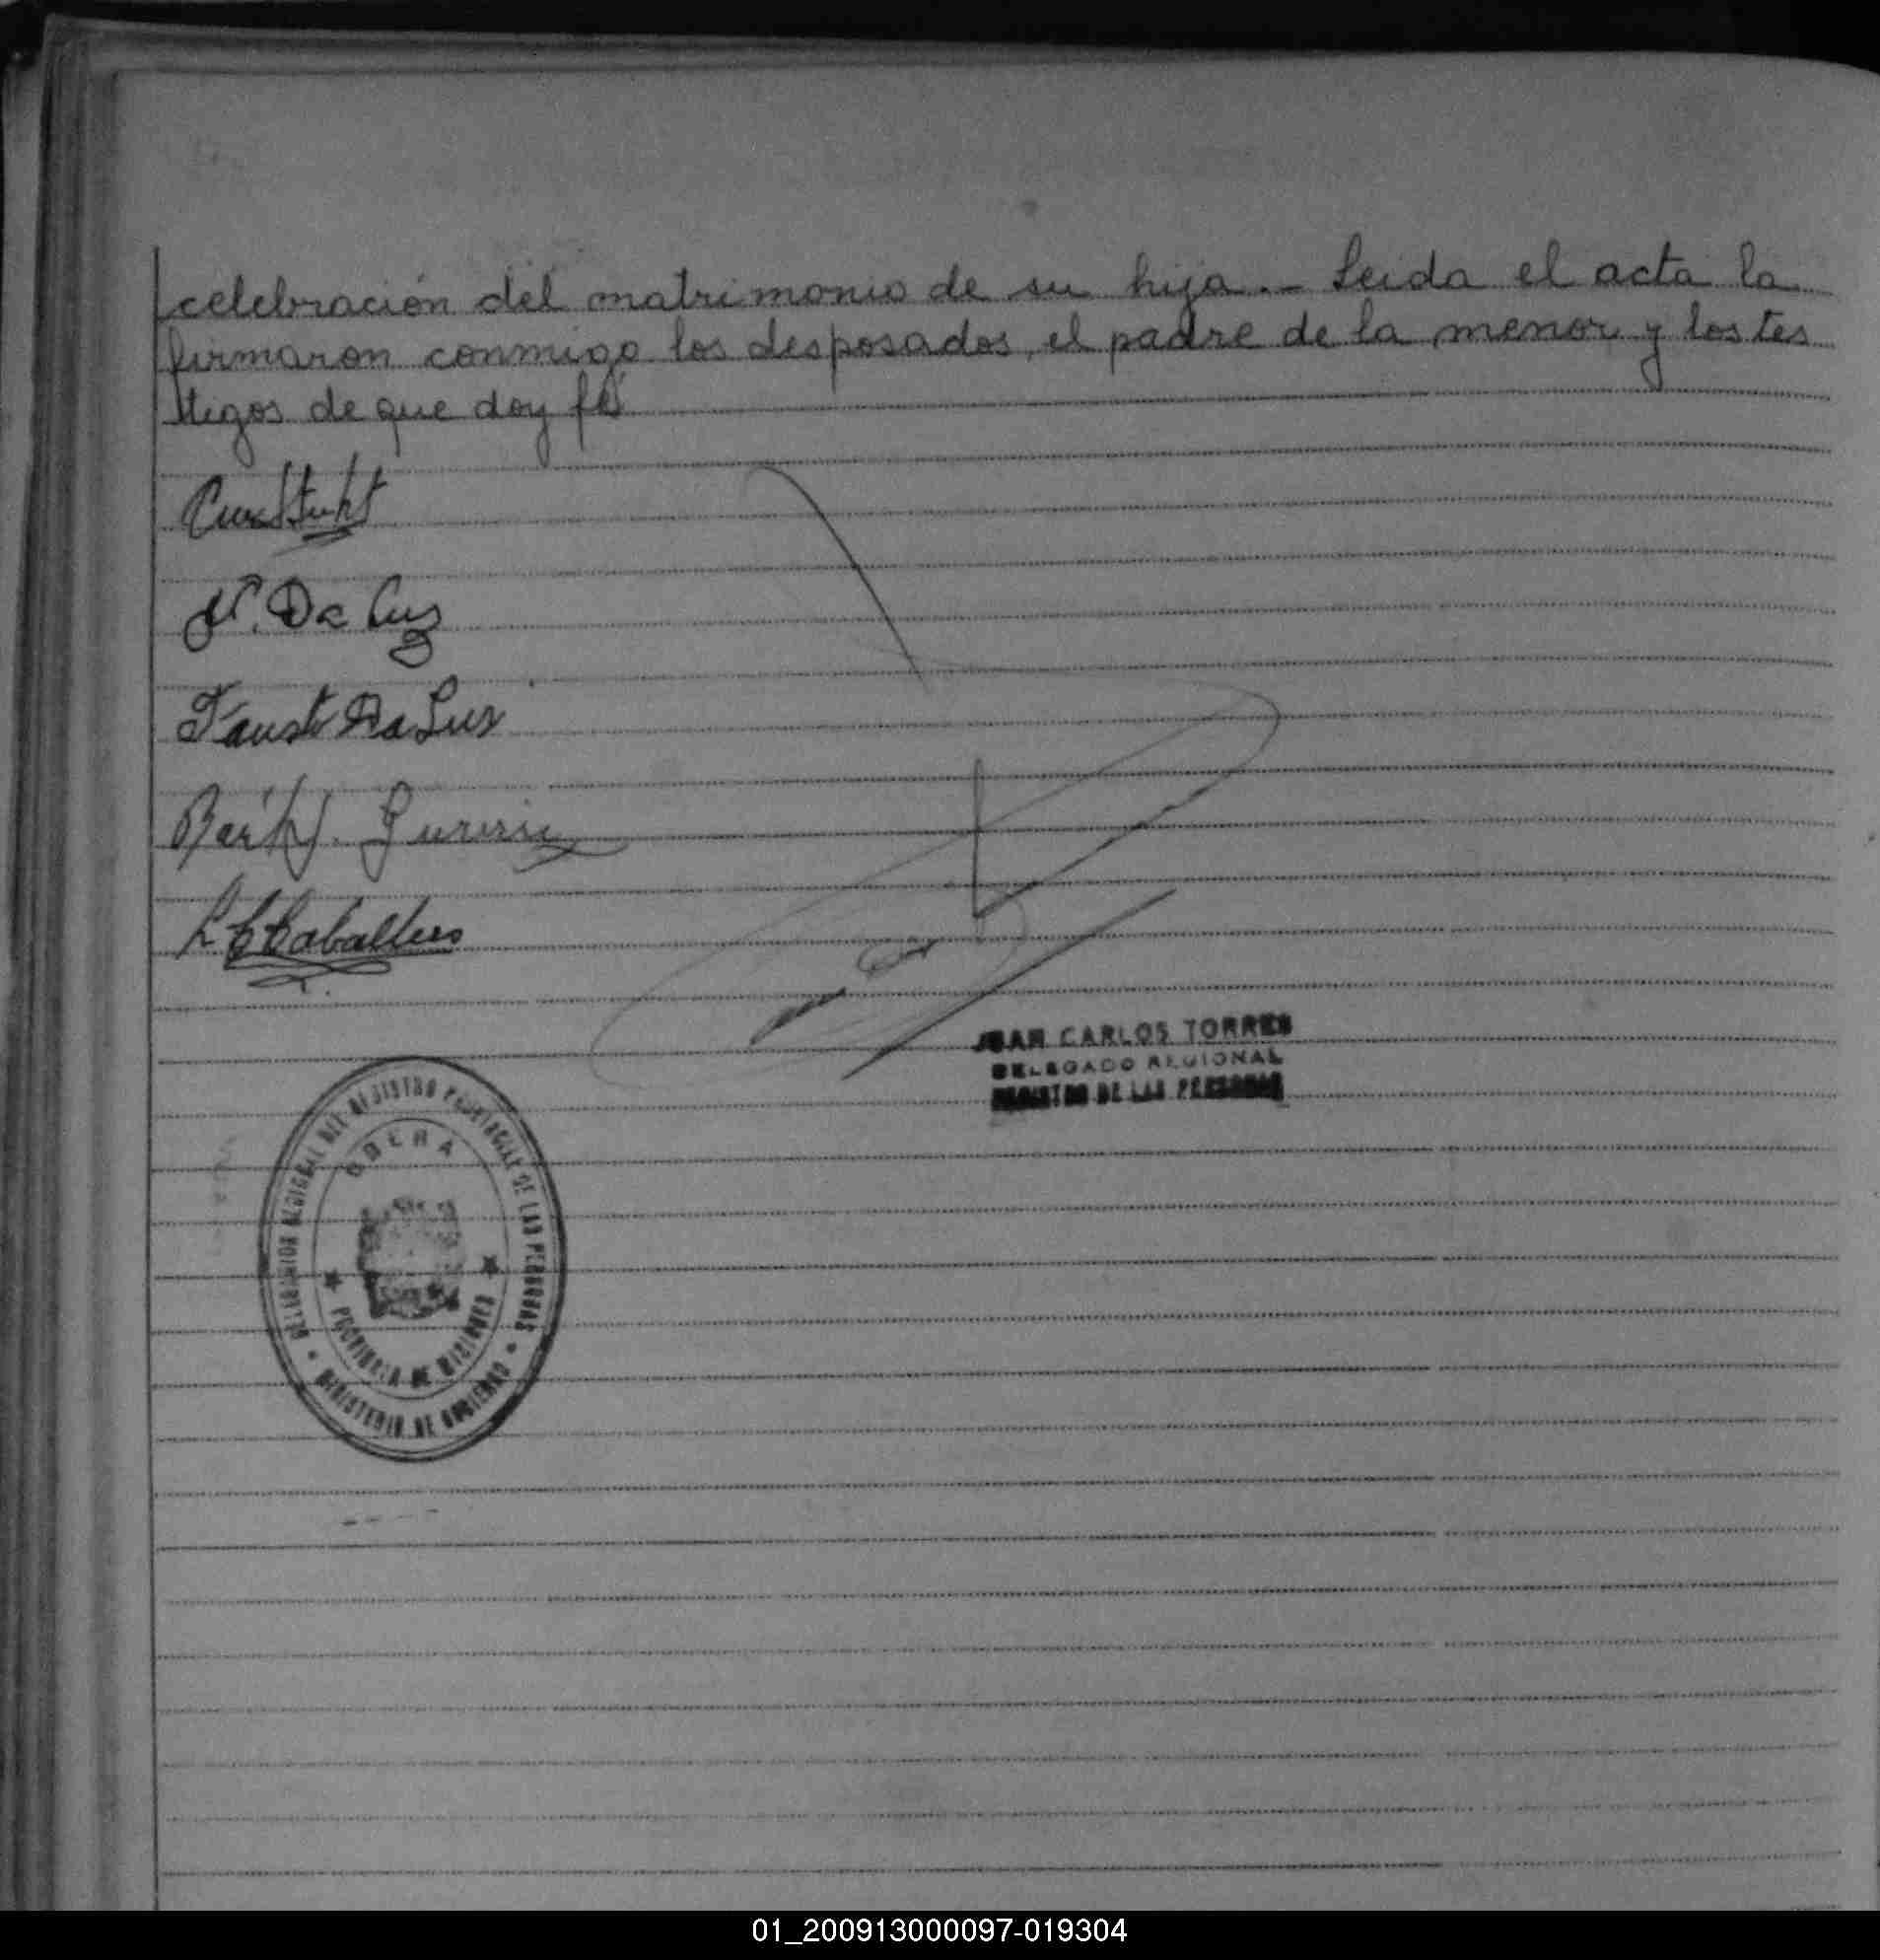 celebración del matrimonio de su hija.- Leida el acta la
firmaron conmigo los desposados, el padre de la menor y los tes
tigos de que doy fé
N. Da Luz
Fausto Da Luz
Caballero
JUAN CARLOS TORRES
DELEGADO REGIONAL
REGISTRO DE LAS PERSONAS
DELEGACION REGIONAL DEL REGISTRO PROVINCIAL DE LAS PERSONAS
OBERA
PROVINCIA DE MISIONES
MINISTERIO DE GOBIERNO
01_200913000097-019304